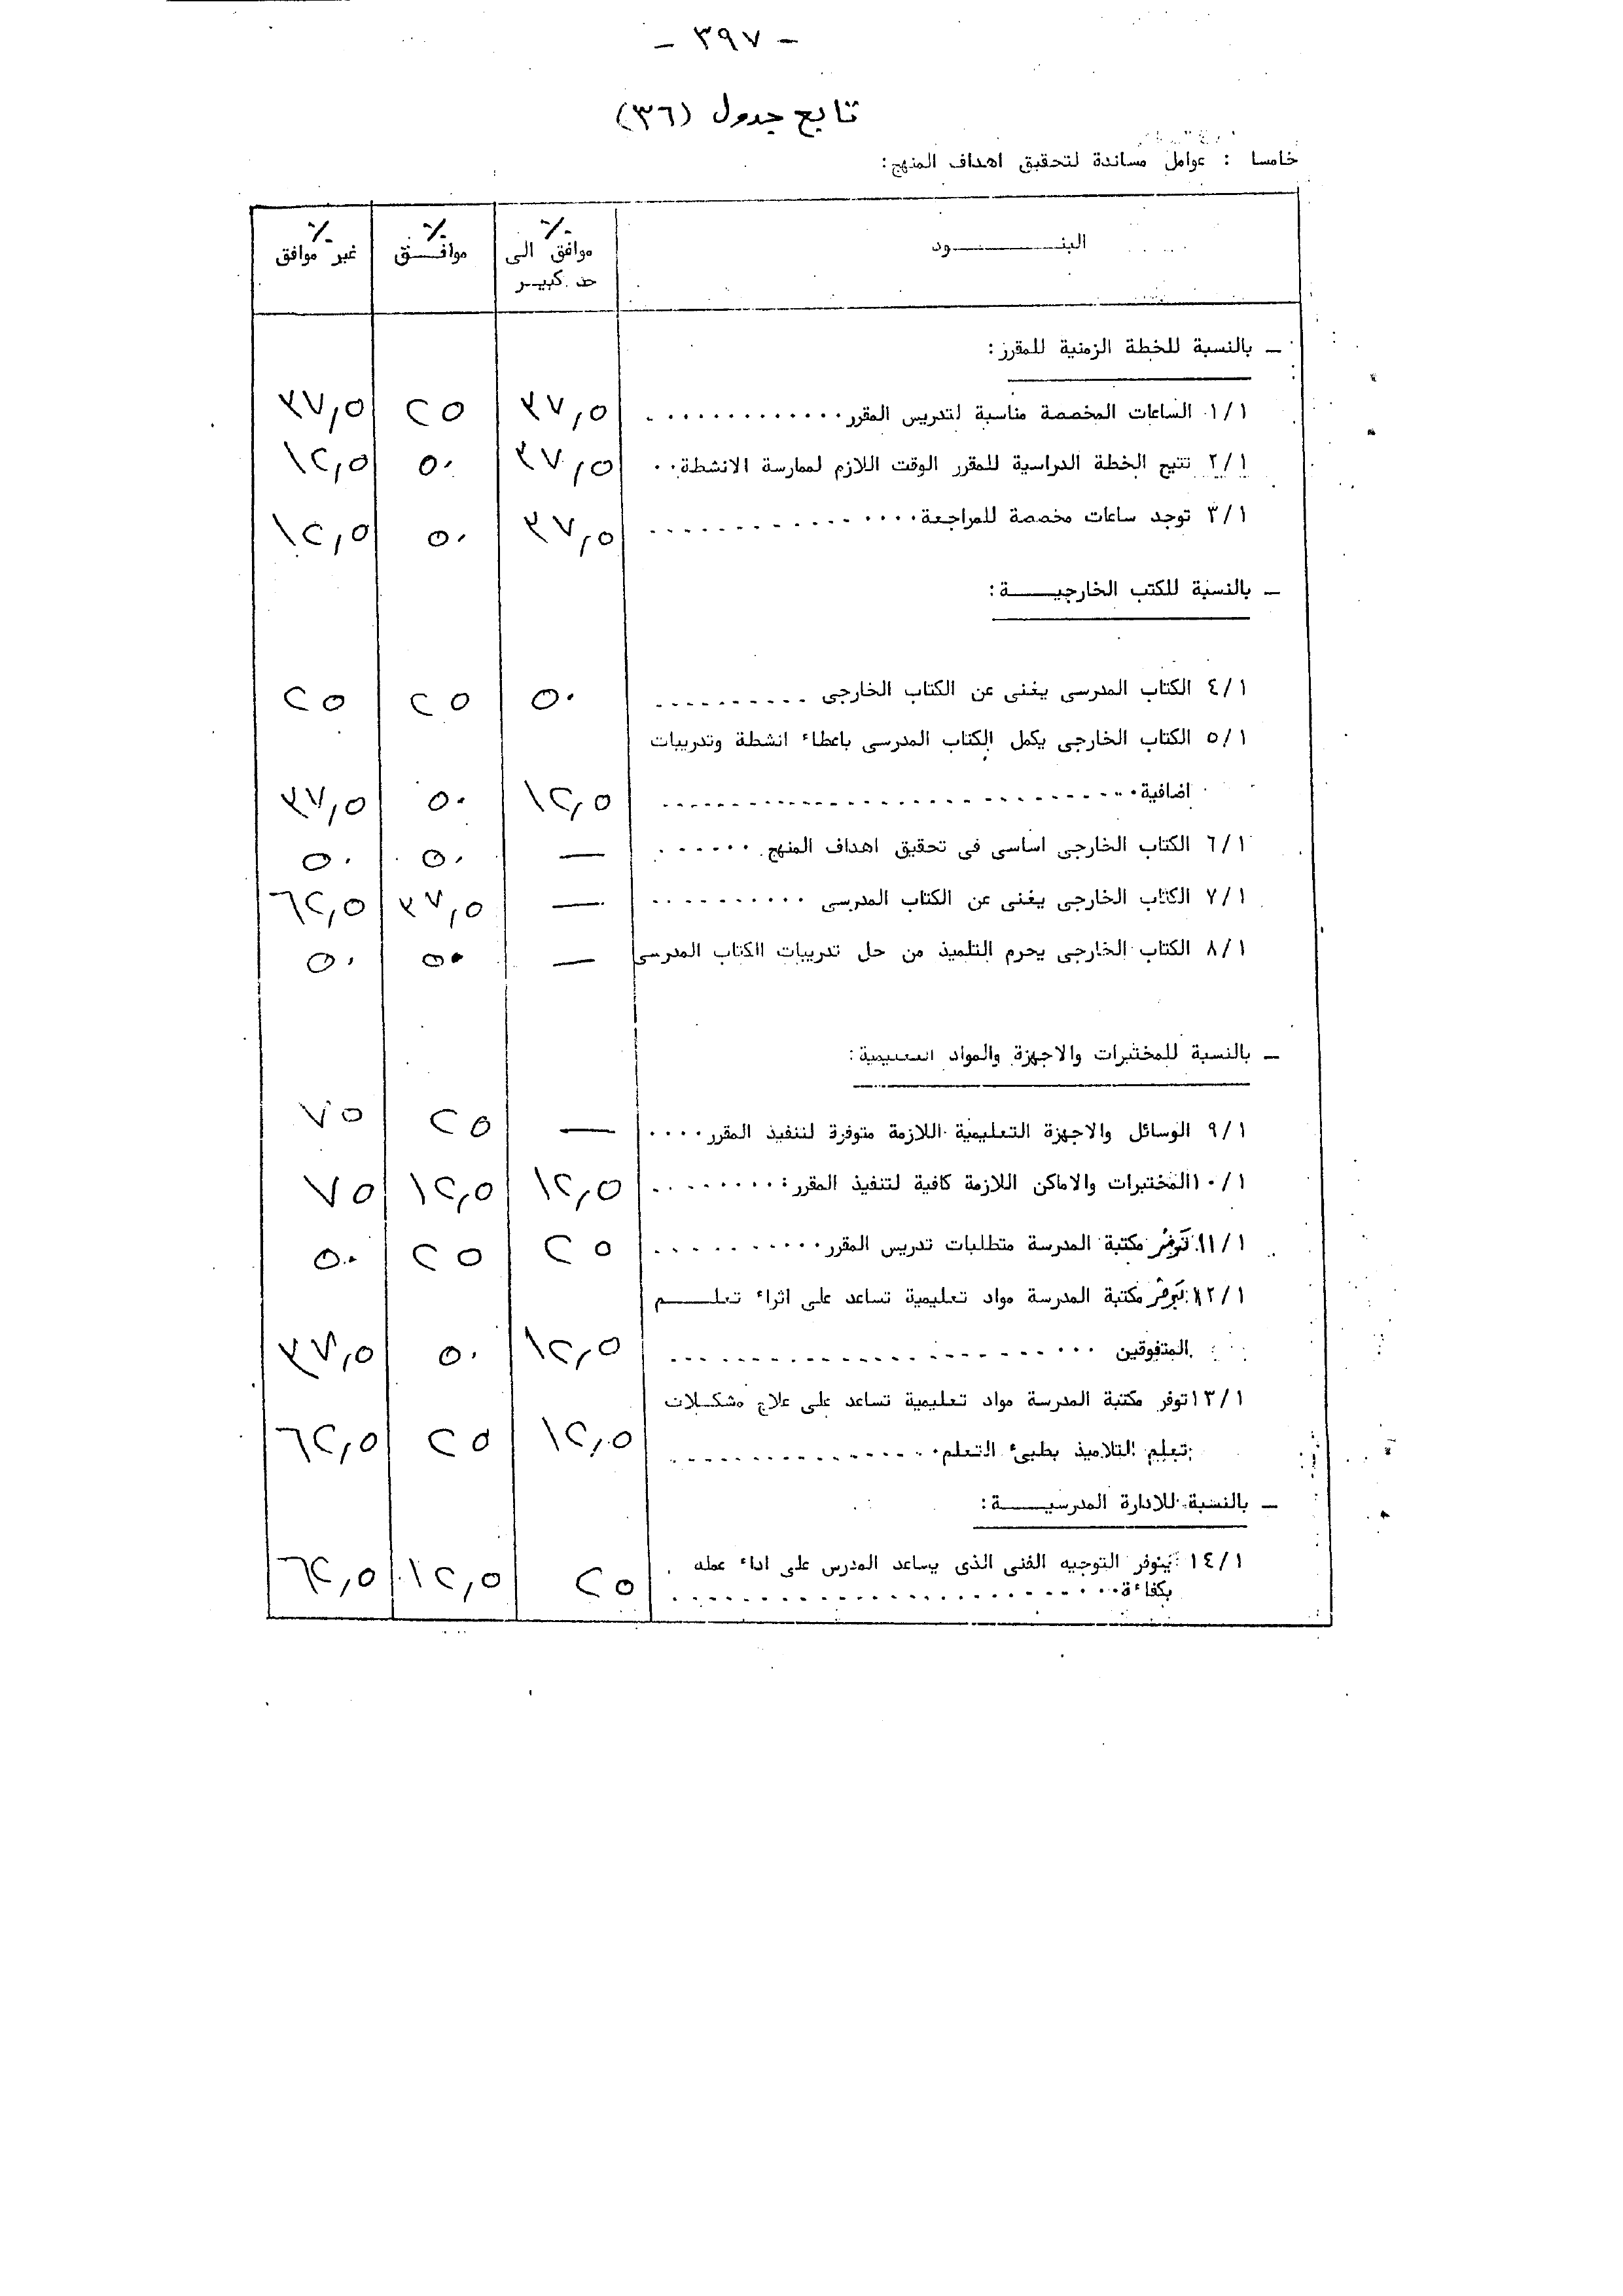 - ٣٩٧ -
تابع جدول (٣٦)
خامسا : عوامل مساندة لتحقيق اهداف المنهج:
البنـــــــود ٪ موافق الى ٪ موافـــق ٪ غير موافق
حد كبيـر
ـ بالنسبة للخطة الزمنية للمقرر:
١/١ الساعات المخصصة مناسبة لتدريس المقرر ............ ٣٧,٥ ٢٥ ٣٧,٥
٢/١ تتيح الخطة الدراسية للمقرر الوقت اللازم لممارسة الانشطة.. ٣٧,٥ ٥٠ ١٢,٥
٣/١ توجد ساعات مخصصة للمراجعة............ ٣٧,٥ ٥٠ ١٢,٥
ـ بالنسبة للكتب الخارجيـــــة:
٤/١ الكتاب المدرسى يغنى عن الكتاب الخارجى .......... ٥٠ ٢٥ ٢٥
٥/١ الكتاب الخارجى يكمل الكتاب المدرسى باعطاء انشطة وتدريبات
اضافية.................... ١٢,٥ ٥٠ ٣٧,٥
٦/١ الكتاب الخارجى اساسى فى تحقيق اهداف المنهج ...... — ٥٠ ٥٠
٧/١ الكتاب الخارجى يغنى عن الكتاب المدرسى .......... — ٣٧,٥ ٦٢,٥
٨/١ الكتاب الخارجى يحرم التلميذ من حل تدريبات الكتاب المدرسى — ٥٠ ٥٠
ـ بالنسبة للمختبرات والاجهزة والمواد التعليمية:
٩/١ الوسائل والاجهزة التعليمية اللازمة متوفرة لتنفيذ المقرر.... — ٢٥ ٧٥
١٠/١ المختبرات والاماكن اللازمة كافية لتنفيذ المقرر........ ١٢,٥ ١٢,٥ ٧٥
١١/١ توفر مكتبة المدرسة متطلبات تدريس المقرر.......... ٢٥ ٢٥ ٥٠
١٢/١ توفر مكتبة المدرسة مواد تعليمية تساعد على اثراء تعلــــم
المتفوقين .................... ١٢,٥ ٥٠ ٣٧,٥
١٣/١ توفر مكتبة المدرسة مواد تعليمية تساعد على علاج مشكـلات
تعلم التلاميذ بطيئ التعلم................ ١٢,٥ ٢٥ ٦٢,٥
ـ بالنسبة للادارة المدرسيـــــة:
١٤/١ يتوفر التوجيه الفنى الذى يساعد المدرس على اداء عمله
بكفاءة.................... ٢٥ ١٢,٥ ٦٢,٥